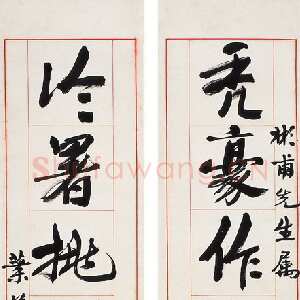 彬甫先生属
秃豪作
冷署挑
葉
Shufawang.CN